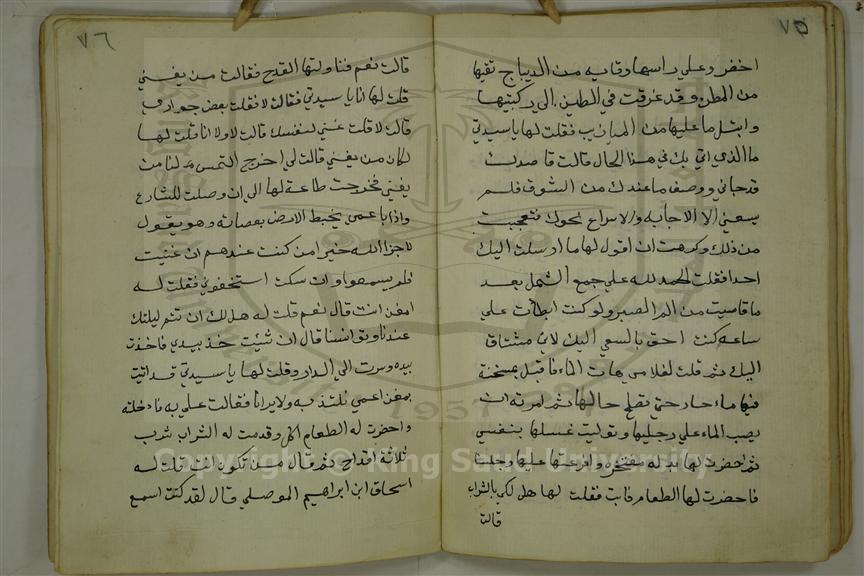 ٧٥
اخضر وعلي راسها وقايه من الديباج تقيها
من المطر وقد غرقت في الطين الي ركبتيها
وابتل ما عليها من الميازيب فقلت لها يا سيدتي
ما الذي اتي بك في هذا الحال قالت قاصدك
قد جاني ووصف ما عندك من الشوق فلم
يسعني الا الاجابه والاسراع نحوك فتعجبت
من ذلك وكرهت ان اقول لها ما ارسلت اليك
احدا فقلت الحمد لله علي جمع الشمل بعد
ما قاسيت من الم الصبر ولو كنت ابطات علي
ساعه كنت احق بالسعي اليك لاني مشتاق
اليك ثم قلت لغلامي هات الماء فاقبل بمسخنة
فيها ماء حار حتي تصلح حالها ثم امرته ان
يصب الماء علي رجليها وتوليت غسلها بنفسي
ثم احضرت لها بدله مفتخره وافرغتها عليها وجلسنا
فاحضرت لها الطعام فابت فقلت لها هل لكي بالشراب
قالت
٧٦
قالت نعم فناولتها القدح فقالت من يغني
قلت لها انا يا سيدتي فقالت لا فقلت بعض جواري
قالت لا قلت غني لنفسك قالت لا ولا انا قلت لها
لكان من يغني قالت لي اخرج التمس لنا من
يغني فخرجت طاعة لها الي ان وصلت للشارع
واذا باعمي يخبط الارض بعصاته وهو يقول
لا جزا الله خيرا من كنت عندهم ان غنيت
فلم يسمعوا وان سكت استخفوني فقلت له
امغن انت قال نعم قلت له هل لك ان تتم ليلتك
عندنا وتوانسنا قال ان شئت خذ بيدي فاخذت
بيده وسرت الي الدار وقلت لها يا سيدتي قد اتيت
بمغن اعمي نلتذ به ولا يرانا فقالت علي به فادخلته
واحضرت له الطعام اكل وقدمت له الشراب شرب
ثلاثة اقداح ثم قال من تكون انت قلت له
اسحاق ابن ابراهيم الموصلي قال لقد كنت اسمع
Copyright © King Saud University
1957